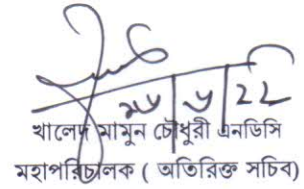 খালেদ মামুন চৌধুরী এনডিসি
মহাপরিচালক ( অতিরিক্ত সচিব)